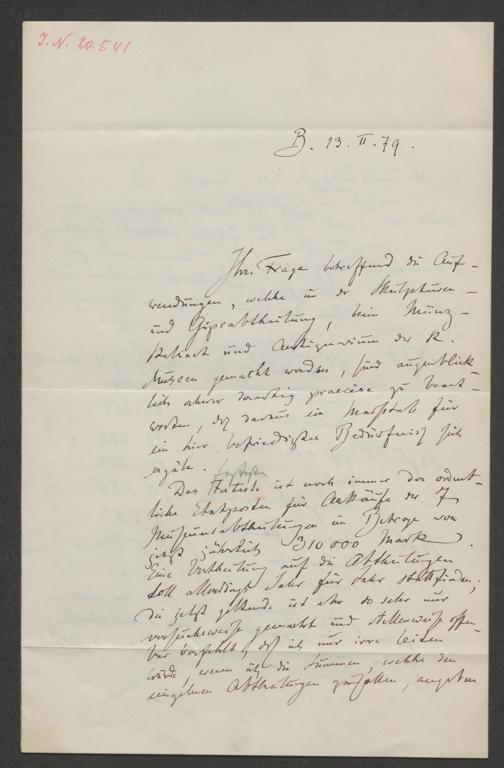 J. N. 20.541
B. 13. II. 79.
Ihre Frage betreffend die Auf-
wendungen, welche in der Skulpturen-
und Gipsabtheilung, beim Münz-
kabinet und Antiquarium der K.
Museen gemacht werden, sind augenblick-
lich schwer derartig praecise zu beant-
worten, daß daraus ein Maßstab für
ein hier befriedigtes Bedürfniß sich
ergäbe.
Das ist noch immer der ordent-
liche Etatsposten für Ankäufe der 7
Museumsabtheilungen im Betrage von
jetzt jährlich 310000 Mark.
Eine Vertheilung auf die Abtheilungen
soll allerdings Jahr für Jahr stattfinden;
die jetzt geltende ist aber so sehr nur
versuchsweise gemacht und stellenweise offen-
bar verfehlt, daß ich nur irre leiten
würde, wenn ich die Summen, welche den
einzelnen Abtheilungen zufallen, angeben